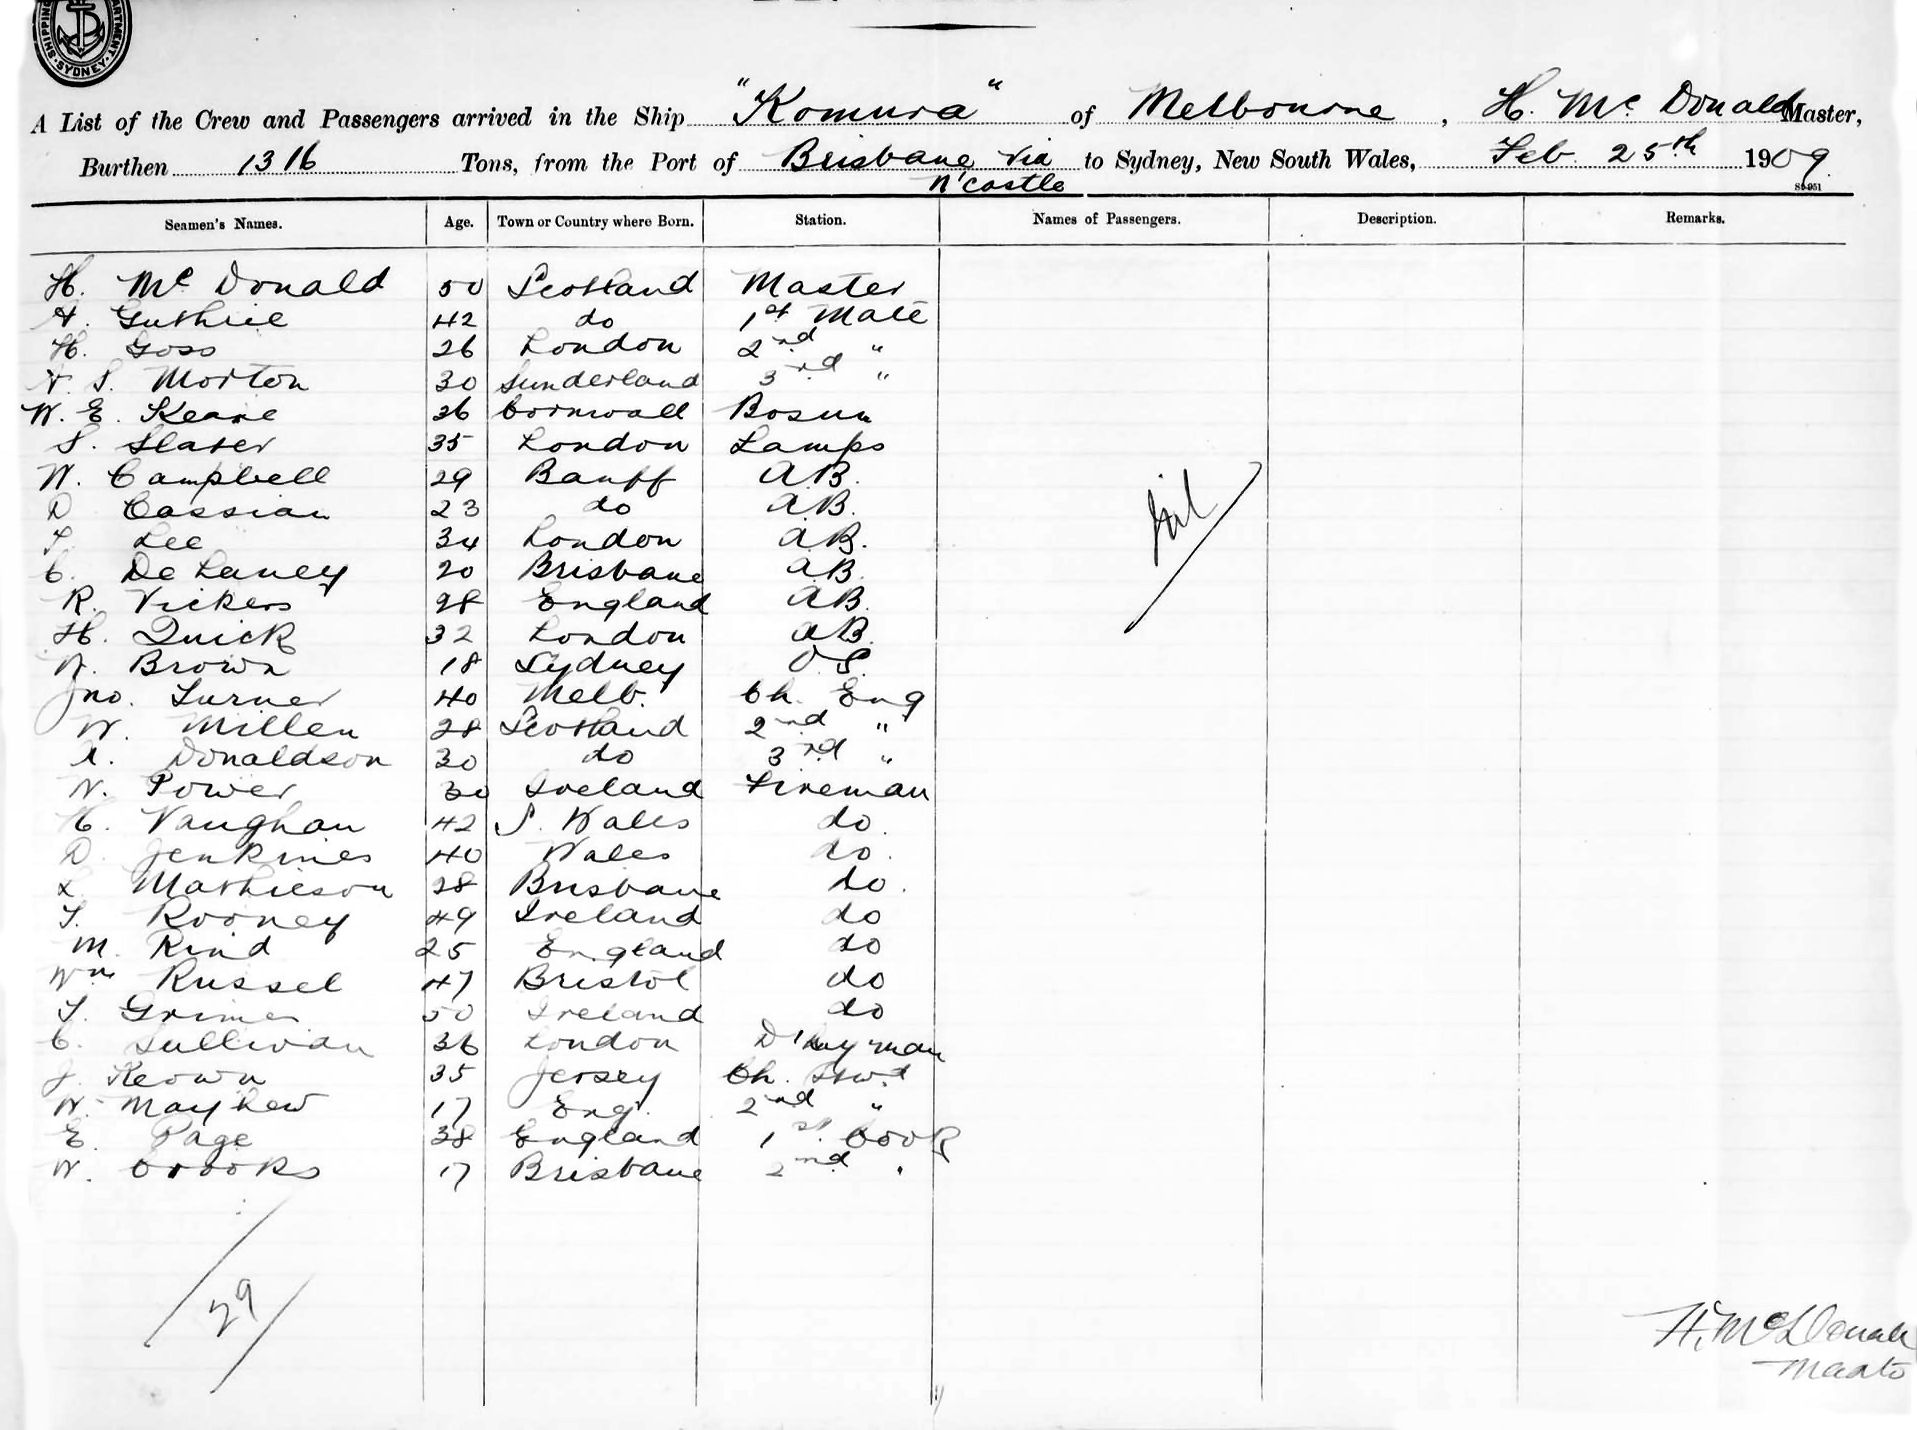 SHIPPING DEPARTMENT SYDNEY
A List of the Crew and Passengers arrived in the Ship "Komura" of Melbourne, H. Mc Donald Master,
Burthen 1316 Tons, from the Port of Brisbane via N'castle to Sydney, New South Wales, Feb 25th 1909
Seamen's Names. Age. Town or Country where Born. Station. Names of Passengers. Description. Remarks.
H. Mc Donald 50 Scotland Master
A. Guthrie 42 do 1st Mate
H. Goss 26 London 2nd "
A. S. Morton 30 Sunderland 3rd "
W. E. Keane 36 Cornwall Bosun
S. Slater 35 London Lamps
W. Campbell 29 Banff A.B.
D Cassian 23 do A.B.
Lee 34 London A.B.
C. De Laney 20 Brisbane A.B.
R. Vickers 28 England A.B.
H. Quick 32 London A.B.
Brown 18 Sydney O S.
Jno. Turner 40 Melb. Ch. Eng
W. Millen 28 Scotland 2nd "
A. Donaldson 30 do 3rd "
Power 30 Ireland Fireman
H. Vaughan 42 S. Wales do.
D. Jenkines 40 Wales do.
L. Mathieson 28 Brisbane do.
T. Rooney 49 Ireland do
M. Rind 25 England do
Wm Russel 47 Bristol do
T. Grimes 50 Ireland do
C. Sullivan 36 London D'keyman
J. Keown 35 Jersey Ch. Stwd
W. Mayhew 17 Eng. 2nd "
E. Page 38 England 1st Cook
W. Crooks 17 Brisbane 2nd "
Nil
29
H. McDonald
Master